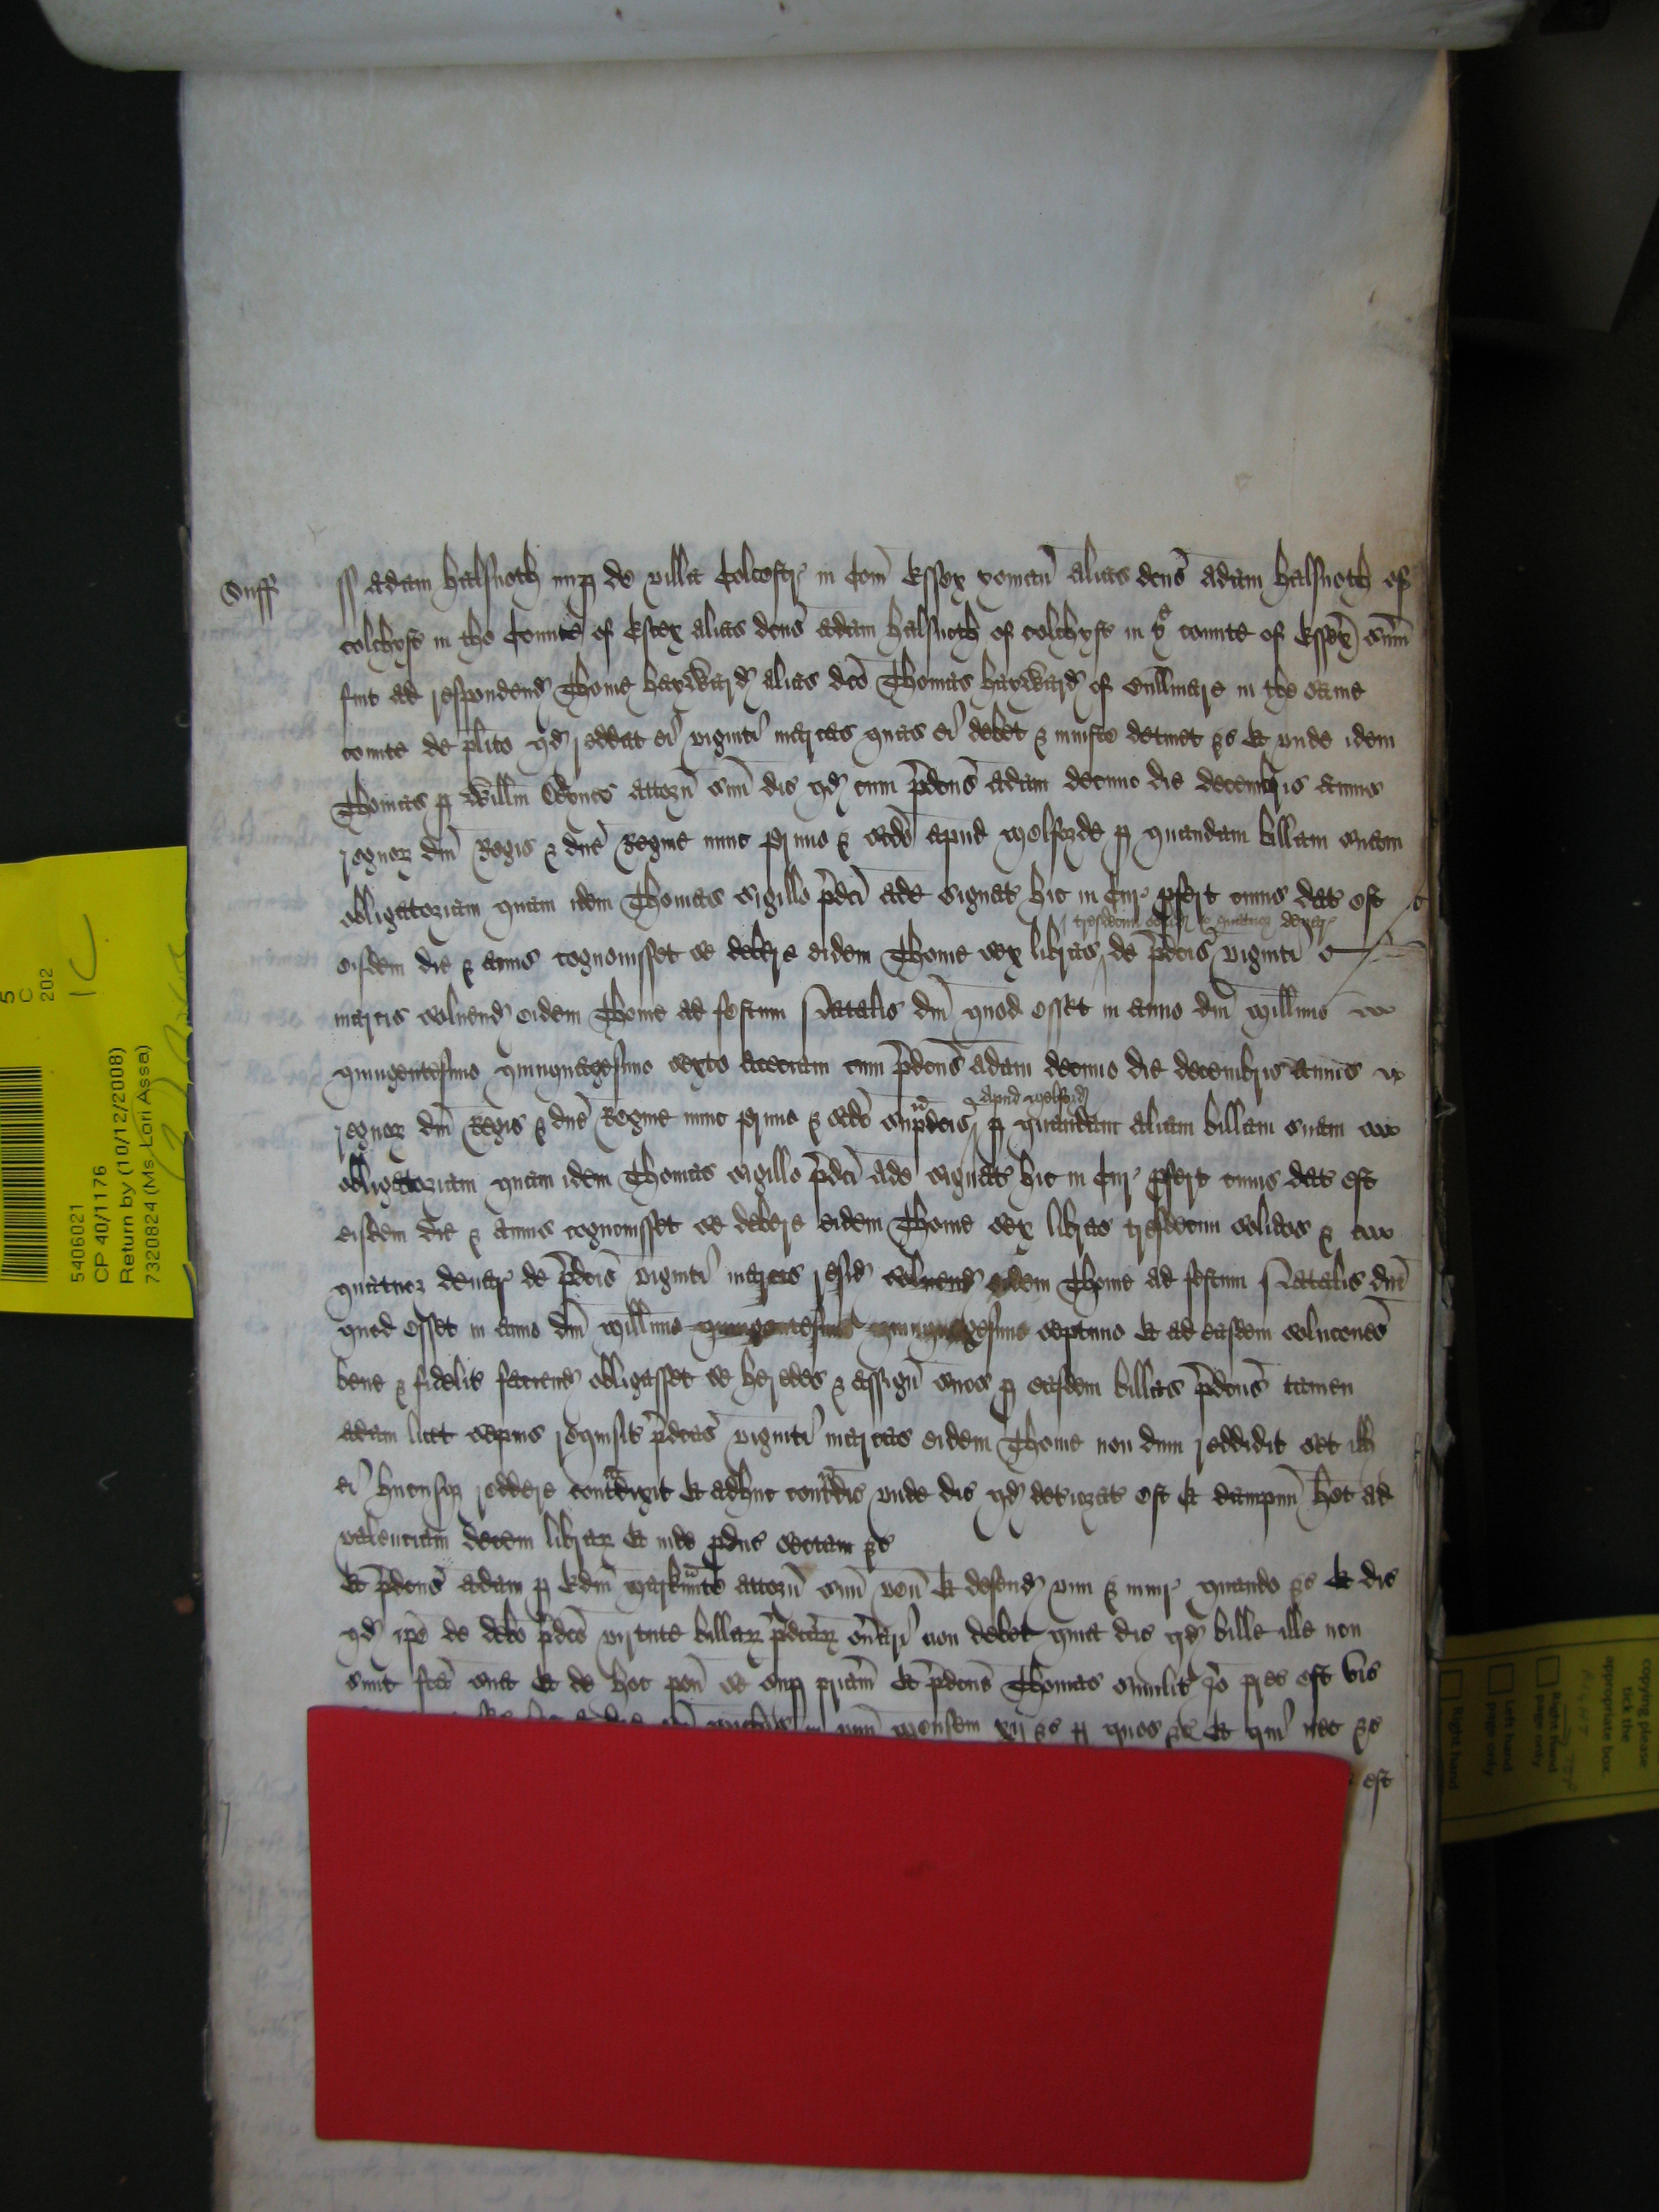 Suff
ss Adam Halsnoth nup de villa Colcestr in Com Essex yoman alias dcus Adam Halsnoth of
colchest in the Countie of Essex alias dcus Adam Halsnoth of colchyst in ye countie of Essex sum
fuit ad respondend Thome Hayward alias dco Thomas Hayward of Cullinare in the same
comte de plito qd reddat ei viginti marcas quas ei debet & iniuste detinet &c Et unde idem
Thomas p Willm attorn suu dic qd cum pdcus Adam decimo die decembris annis
regnor dni Regis & dne Regine nunc primo & scdo apud Melforde p quandam billam suam
obligatoriam quam idem Thomas sigillo pdci Ade signat hic in Cur pfert cuius dat est
tresdecim solid & quatuor denar
eisdem die & annis cognouisset se debere eidem Thome sex libras de pdcis viginti
marcis soluend eidem Thome ad festum Natalis dni quod esset in anno dni Millimo
quingentesimo quinquagesimo sexto Acetiam cum pdcus Adam decimo die decembris Annis
apud Melford
regnor dni Regis & dne Regine nunc primo & scdo supdcis p quandam aliam billam suam
obligatoriam quam idem Thomas sigillo pdci Ade signat hic in Cur pfert cuius dat est
eisdem die & annis cognouisset se debere eidem Thome sex libras tresdecim solidos &
quatuor denar de pdcis viginti marcis resid soluend eidem Thome ad festum Natalis dni
quod esset in anno dni Millimo quingentesimo quinquagesimo septimo Et ad easdem soluciones
bene & fidelit faciend obligasset se heredes & assign suos p easdem billas pdcus tamen
Adam licet sepius requisit pdcas viginti marcas eidem Thome non dum reddidit set ill
ei hucusq reddere contradixit Et adhuc contradic unde dic qd deteriorat est Et dampnu het ad
valenciam decem librar Et inde pduc sectam &c
Et pdcus Adam p Edm attorn suu ven Et defend vim & iniur quando &c Et dic
qd ipe de debo pdco virtute billar pdcar onari non debet quia dic qd bille ille non
sunt fca sua Et de hoc pon se sup priam Et pdcus Thomas similit Io prec est vic
mensem xij &c p quos &c Et qui nec &c
est
5
C
202
1C
5406021
CP 40/1176
Return by (10/12/2008)
7320824 (Ms Lori Assa)
copying please
tick the
appropriate box.
RIGHT
Right hand
page only
Left hand
page only
Right hand